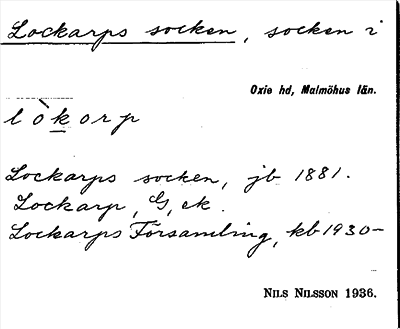 Lockarps socken, socken i
Oxie hd, Malmöhus län.
lòkorp
Lockarps socken, jb 1881.
Lockarp, G, ek.
Lockarps Församling, kb 1930-
NILS NILSSON 1936.